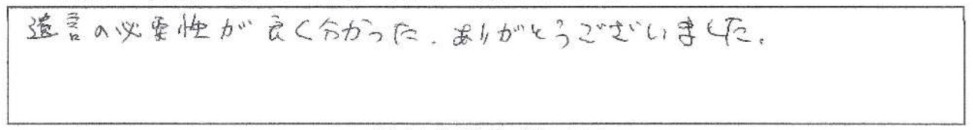 遺言の必要性が良く分かった。ありがとうございました。